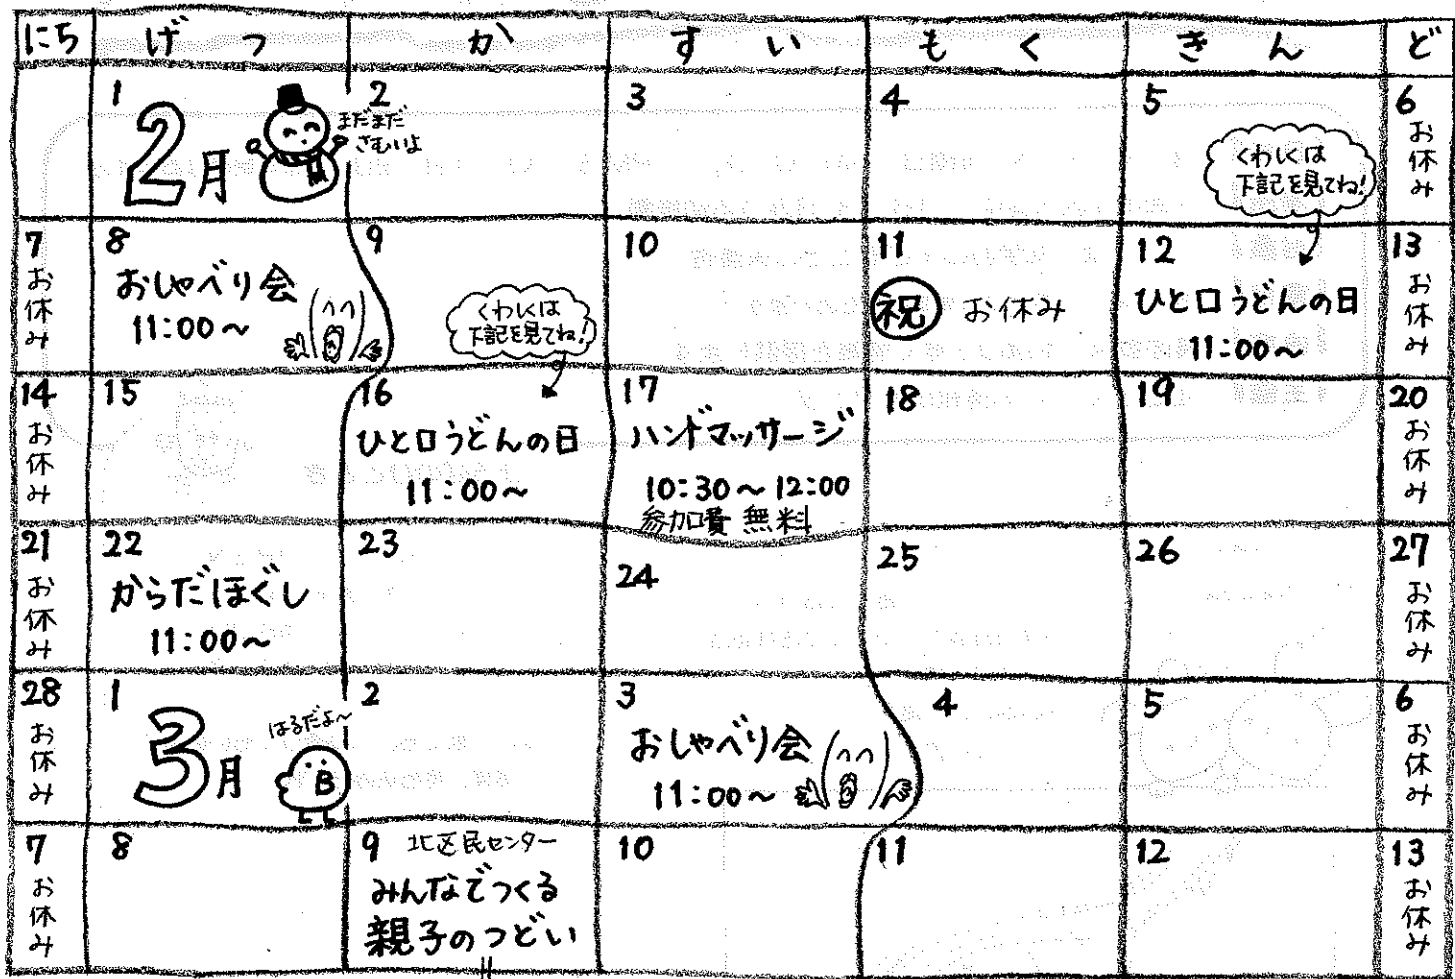 にち げつ か すい もく きん ど
1
2月
まだまだ
さむいよ
2
3
4
5
くわしくは
下記を見てね!
6
お休み
7
お休み
8
おしゃべり会
11:00～
9
くわしくは
下記を見てね!
10
11
祝 お休み
12
ひと口うどんの日
11:00～
13
お休み
14
お休み
15
16
ひと口うどんの日
11:00～
17
ハンドマッサージ
10:30～12:00
参加費 無料
18
19
20
お休み
21
お休み
22
からだほぐし
11:00～
23
24
25
26
27
お休み
28
お休み
1
3月
はるだよ～
B
2
3
おしゃべり会
11:00～
4
5
6
お休み
7
お休み
8
9 北区民センター
みんなでつくる
親子のつどい
10
11
12
13
お休み